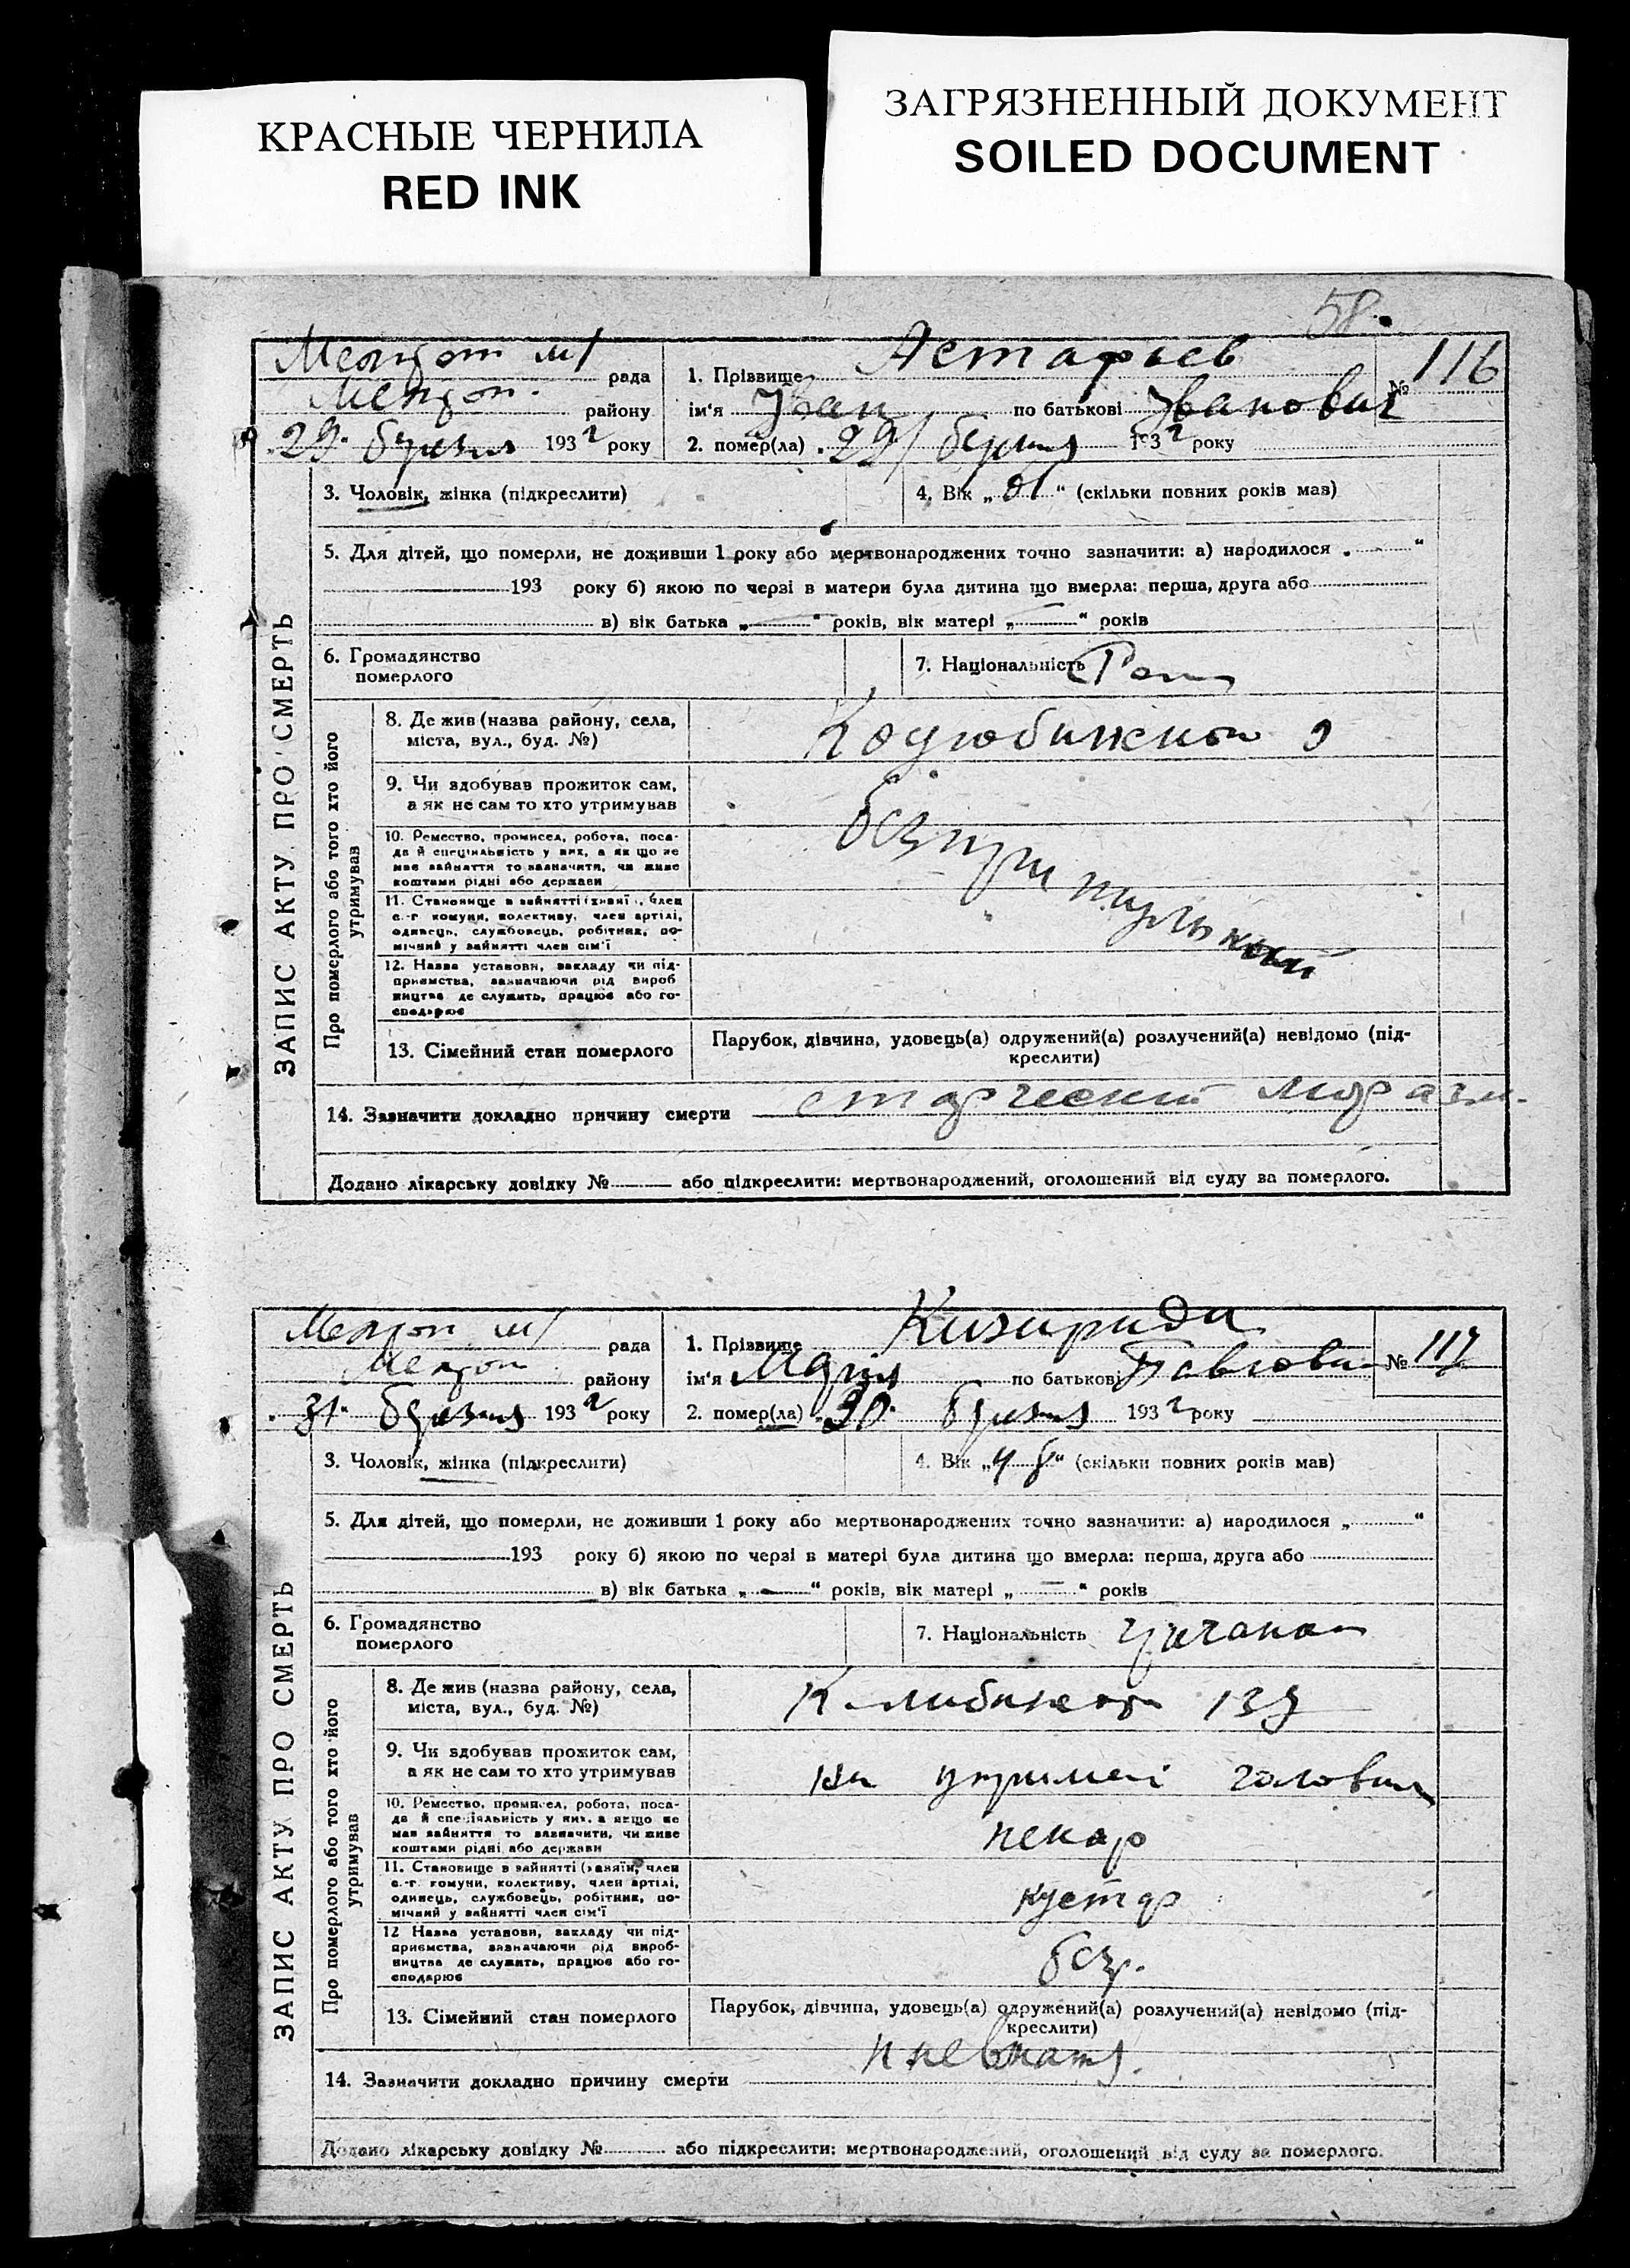 КРАСНЫЕ ЧЕРНИЛА
RED INK
ЗАГРЯЗНЕННЫЙ ДОКУМЕНТ
SOILED DOCUMENT
58.
ЗАПИС АКТУ ПРО СМЕРТЬ
рада
району
29. березня 1932 року
1. Прізвище Астафьев
№ 116
ім'я Іван по батькові Іванович
2. помер(ла) 29/ березня 1932 року
3. Чоловік, жінка (підкреслити)
4. Вік „ “ (скільки повних років мав)
5. Для дітей, що померли, не доживши 1 року або мертвонароджених точно зазначити: а) народилося „ “
193 року б) якою по черзі в матери була дитина що вмерла: перша, друга або
в) вік батька „—“ років, вік матері „—“ років
6. Громадянство
померлого
7. Національність
Про померлого або того хто його
утримував
8. Де жив (назва району, села,
міста, вул., буд. №)
9. Чи здобував прожиток сам,
а як не сам то хто утримував
10. Ремество, промисел, робота, поса-
да й спеціяльність у них, а як що не
мав зайняття то зазначити, чи живе
коштами рідні або держави
11. Становище в зайнятті (хазяїн, член
с.-г комуни, колективу, член артілі,
одинець, службовець, робітник, по-
мічний у зайнятті член сім'ї
12. Назва установи, закладу чи під-
приємства, зазначаючи рід вироб
ництва де служить, працює або го-
сподарює
13. Сімейний стан померлого
Парубок, дівчина, удовець(а) одружений(а) розлучений(а) невідомо (під-
креслити)
14. Зазначити докладно причину смерти старческий маразм.
Додано лікарську довідку № або підкреслити: мертвонароджений, оголошений від суду за померлого.
ЗАПИС АКТУ ПРО СМЕРТЬ
рада
району
31. березня 1932 року
1. Прізвище
№ 117
ім'я Марія по батькові Павловна
2. помер(ла) 30. березня 1932 року
3. Чоловік, жінка (підкреслити)
4. Вік „48“ (скільки повних років мав)
5. Для дітей, що померли, не доживши 1 року або мертвонароджених точно зазначити: а) народилося „ “
193 року б) якою по черзі в матері була дитина що вмерла: перша, друга або
в) вік батька „—“ років, вік матері „—“ років
6. Громадянство
померлого
7. Національність
Про померлого або того хто його
утримував
8. Де жив (назва району, села,
міста, вул., буд. №)
9. Чи здобував прожиток сам,
а як не сам то хто утримував
на
10. Ремество, промисел, робота, поса-
да й спеціяльність у них, а якщо не
мав зайняття то зазначити, чи живе
коштами рідні або держави
пекар
11. Становище в зайнятті (хазяїн, член
с.-г. комуни, колективу, член артілі,
одинець, службовець, робітник, по-
мічний у зайнятті член сім'ї
кустар
12 Назва установи, закладу чи під-
приємства, зазначаючи рід вироб-
ництва де служить, працює або го-
сподарює
13. Сімейний стан померлого
Парубок, дівчина, удовець(а) одружений(а) розлучений(а) невідомо (під-
креслити)
14. Зазначити докладно причину смерти
Додано лікарську довідку № або підкреслити: мертвонароджений, оголошений від суду за померлого.